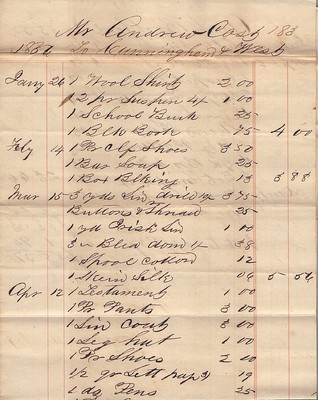 Mr Andrew Cost 183
1837 To Cunningham & West
Janry 26 1 Wool Shirt 2 00
1 2 pr Suspen 4/ 1 00
1 School Buck 25
1 Blk Book 75 4 00
Feby 14 1 Pr Clf Shoes 3 50
1 Bar Soap 25
1 Box Blking 13 3 88
Mar 15 3 yds Lin drill 3 75
Buttons & Thread 25
1 yd Irish Lin 1 00
3 " Blea dom 38
1 Spool Cotton 12
1 Skein Silk 06 5 56
Apr 12 1 Testament 1 00
1 Pr Pants 3 00
1 Lin Coat 3 00
1 Leg hat 1 00
1 Pr Shoes 2 00
1/2 qr Lett pap 19
1 dz Pens 25